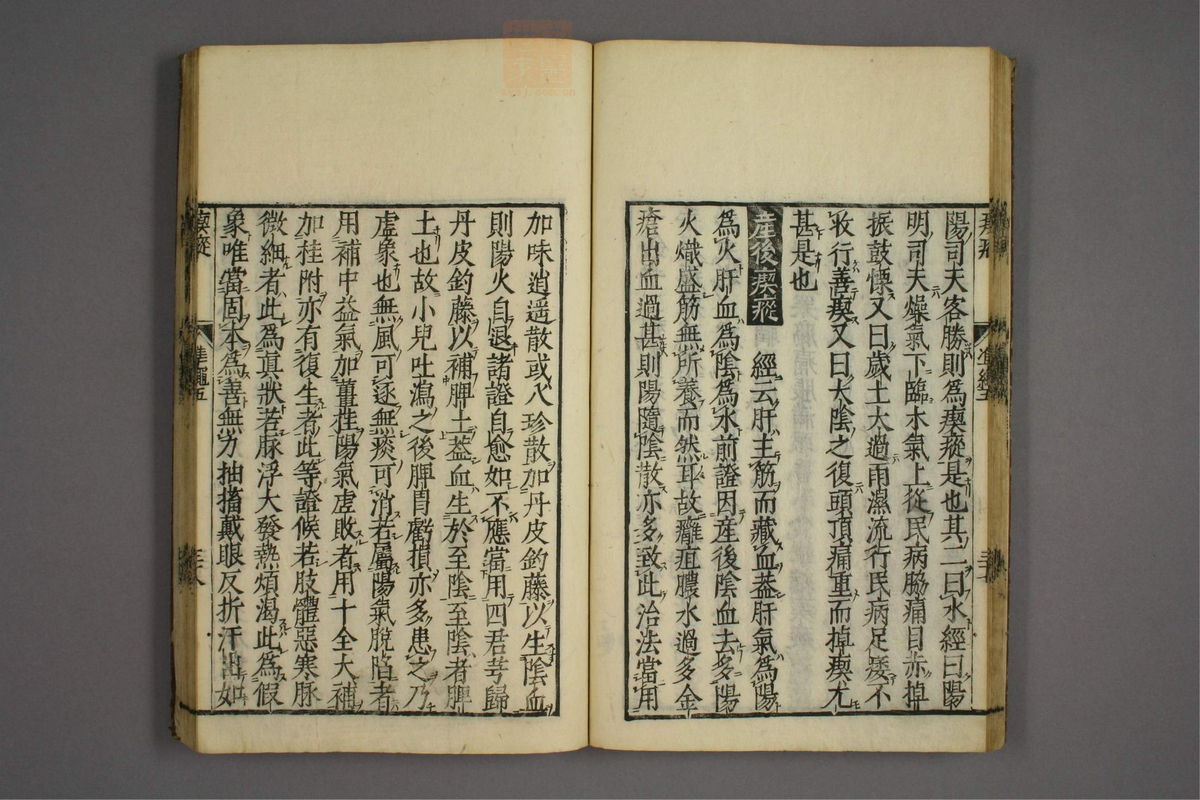 陽司天客勝則為瘈瘲是也其二曰水經曰陽
明司天燥氣下臨木氣上從民病脇痛目赤掉
振鼓慄又曰歲土太過雨濕流行民病足痿不
收行善瘈又曰太陰之復頭頂痛重而掉瘈尤
甚是也
產後瘈瘲 經云肝主筋而藏血葢肝氣為陽
為火肝血為陰為水前證因産後陰血去多陽
火熾盛筋無所養而然耳故癰疽膿水過多金
瘡出血過甚則陽隨陰散亦多致此治法當用
瘈瘲
準繩五
加味逍遥散或八珍散加丹皮釣藤以生陰血
則陽火自退諸證自愈如不應當用四君芎歸
丹皮釣藤以補脾土葢血生於至陰至陰者脾
土也故小兒吐瀉之後脾胃虧損亦多患之乃
虛象也無風可逐無痰可消若屬陽氣脫陷者
用補中益氣加薑桂陽氣虛敗者用十全大補
加桂附亦有復生者此等證候若肢體惡寒脉
微細者此為真狀若脉浮大發熱煩渴此為假
象唯當固本為善無力抽搐戴眼反折汗出如
瘈瘲
準繩五